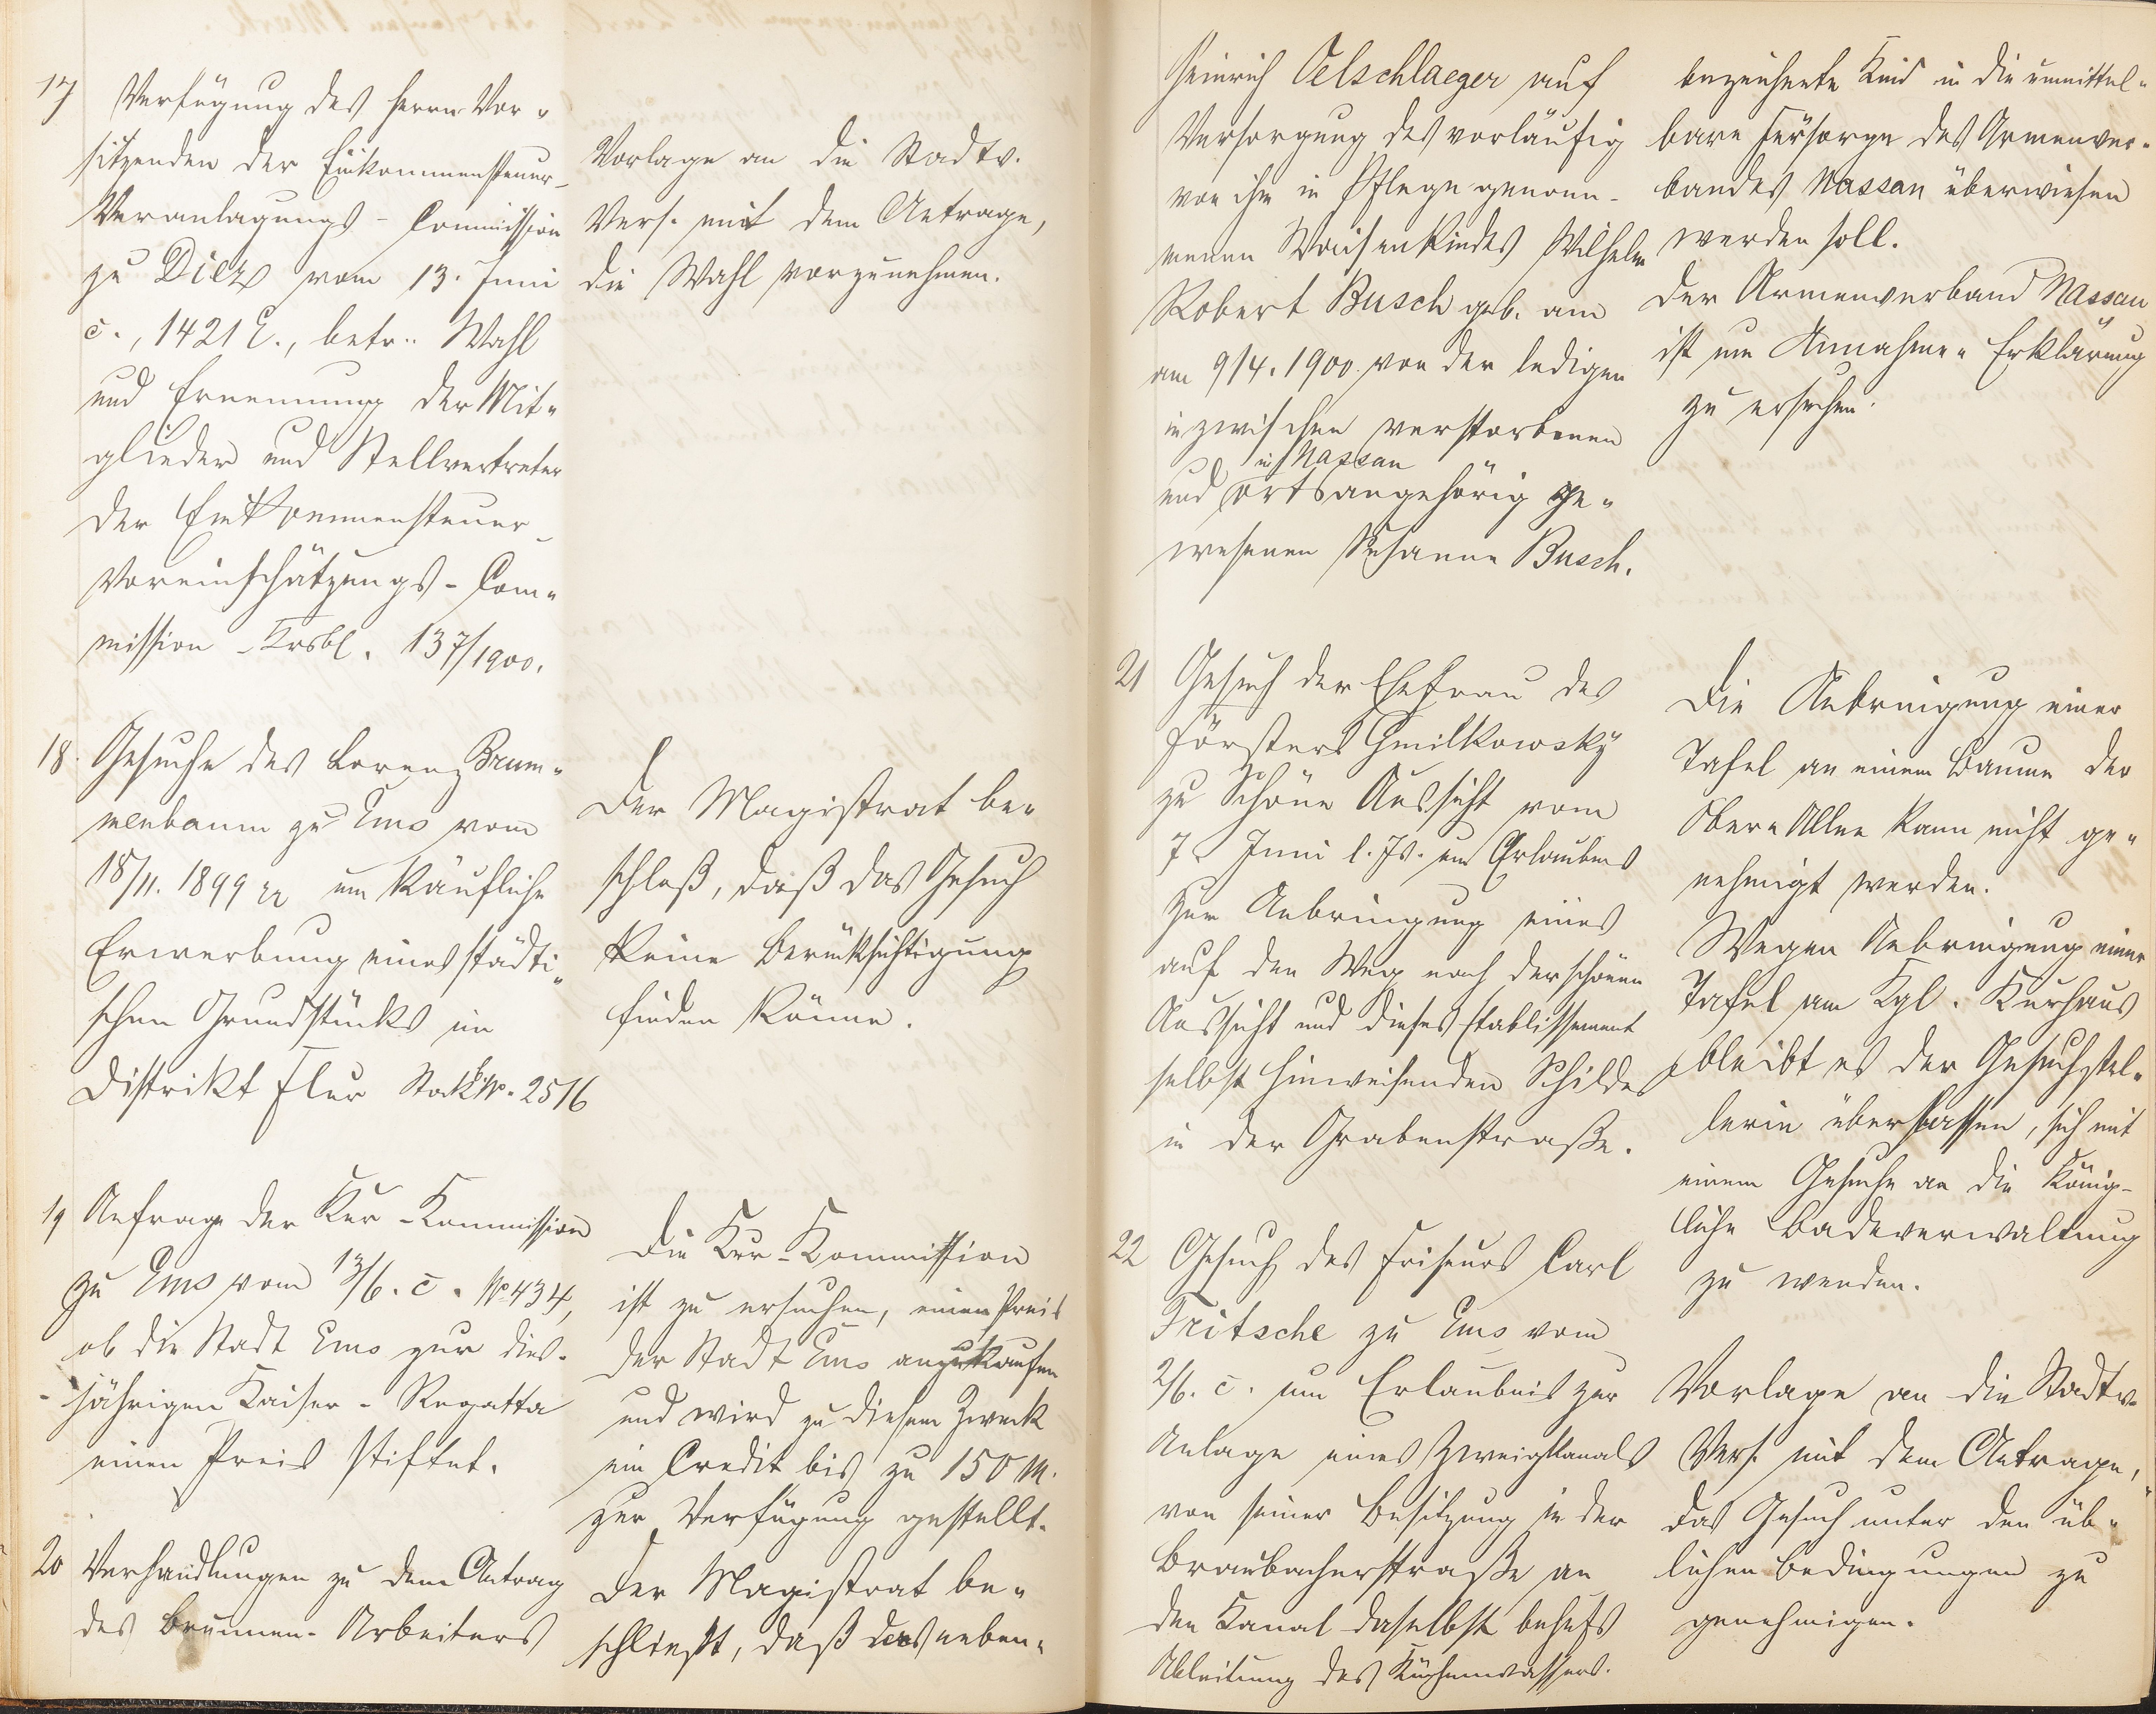 17 Verfügung des Herrn Vor-
sitzenden der Einkommensteuer-
Veranlagungs-Commission
zu Diez vom 13. Juni
c., 1421 E., betr. Wahl
und Ernennung der Mit-
glieder und Stellvertreter
der Einkommensteuer-
Voreinschätzungs-Com-
mission - Krsbl. 137/1900.
Vorlage an die Stadtv.
Vers. mit dem Antrage,
die Wahl vorzunehmen.
18. Gesuche des Lorenz Brum-
menbaum zu Ems vom
18/11. 1899 um käufliche
Erwerbung eines städti-
schen Grundstücks im
Distrikt Flur Stockb. No. 2516
Der Magistrat be-
schloß, daß das Gesuch
keine Berücksichtigung
finden könne.
19 Anfrage der Kur-Kommission
zu Ems vom 13/6. c. No 434,
ob die Stadt Ems zur dies-
jährigen Kaiser-Regatta
einen Preis stiftet.
Die Kur-Kommission
ist zu ersuchen, einen Preis
der Stadt Ems anzukaufen
und wird zu diesem Zweck
ein Credit bis zu 150 M.
zur Verfügung gestellt.
20 Verhandlungen zu dem Antrag
des Brunnen-Arbeiters
Der Magistrat be-
schließt, daß das neben-
Heinrich Oelschlaeger auf
Versorgung des vorläufig
von ihm in Pflege genom-
menen Waisenkindes Wilhelm
Robert Busch geb. am
am 9/4. 1900. von der ledigen
inzwischen verstorbenen
in Nassau
und ortsangehörig ge-
wesenen Susanne Busch.
bezeichnete Kind in die unmittel-
bare Fürsorge des Armenver-
bandes Nassau überwiesen
werden soll.
Der Armenverband Nassau
ist um Annahme-Erklärung
zu ersuchen.
21 Gesuch der Ehefrau des
Försters Gmilkowsky
zu Schöne Aussicht vom
7. Juni l. Js. um Erlaubnis
zur Anbringung eines
auf den Weg nach der schönen
Aussicht und dieses Etablissement
selbst hinweisenden Schildes
in der Grabenstraße.
Die Anbringung einer
Tafel an einem Baume der
Ober-Allee kann nicht ge-
nehmigt werden.
Wegen Anbringung einer
Tafel am Kgl. Kurhaus
bleibt es der Gesuchstel-
lerin überlassen, sich mit
einem Gesuche an die König-
liche Badeverwaltung
zu wenden.
22 Gesuch des Friseurs Carl
Fritsche zu Ems vom
2/6. c. um Erlaubnis zur
Anlage eines Zweigkanals
von seiner Besitzung in der
Braubacherstraße an
den Kanal daselbst behufs
Ableitung des Küchenwassers.
Vorlage an die Stadtv.
Vers. mit dem Antrage,
das Gesuch unter den üb-
lichen Bedingungen zu
genehmigen.